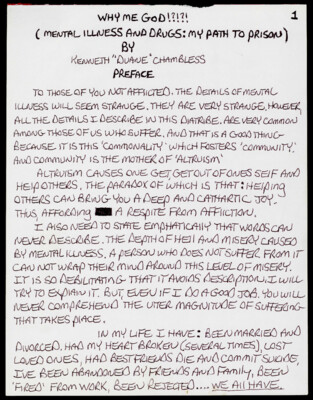 WHY ME GOD!?!?!
1
(MENTAL ILLNESS AND DRUGS: MY PATH TO PRISON)
BY
KENNETH "DUANE" CHAMBLESS
PREFACE
TO THOSE OF YOU NOT AFFLICTED. THE DETAILS OF MENTAL
ILLNESS WILL SEEM STRANGE. THEY ARE VERY STRANGE, HOWEVER,
ALL THE DETAILS I DESCRIBE IN THIS DIATRIBE. ARE VERY COMMON
AMONG THOSE OF US WHO SUFFER. AND THAT IS A GOOD THING-
BECAUSE IT IS THIS 'COMMONALITY' WHICH FOSTERS 'COMMUNITY.'
AND COMMUNITY IS THE MOTHER OF 'ALTRUISM'
ALTRUISM CAUSES ONE GET GET OUT OF ONES SELF AND
HELP OTHERS. THE PARADOX OF WHICH IS THAT: HELPING
OTHERS CAN BRING YOU A DEEP AND CATHARTIC JOY.
THUS, AFFORDING A RESPITE FROM AFFLICTION.
I ALSO NEED TO STATE EMPHATICALLY THAT WORDS CAN
NEVER DESCRIBE. THE DEPTH OF HELL AND MISERY CAUSED
BY MENTAL ILLNESS. A PERSON WHO DOES NOT SUFFER FROM IT
CAN NOT WRAP THEIR MIND AROUND THIS LEVEL OF MISERY.
IT IS SO DEBILITATING THAT IT AVOIDS DESCRIPTION. I WILL
TRY TO EXPLAIN IT. BUT, EVEN IF I DO A GOOD JOB. YOU WILL
NEVER COMPREHEND THE UTER MAGNATUDE OF SUFFERING
THAT TAKES PLACE.
IN MY LIFE I HAVE: BEEN MARRIED AND
DIVORCED. HAD MY HEART BROKEN (SEVERAL TIMES), LOST
LOVED ONES, HAD BEST FRIENDS DIE AND COMMIT SUICIDE,
I'VE BEEN ABANDONED BY FRIENDS AND FAMILY, BEEN
'FIRED' FROM WORK, BEEN REJECTED.... WE ALL HAVE.